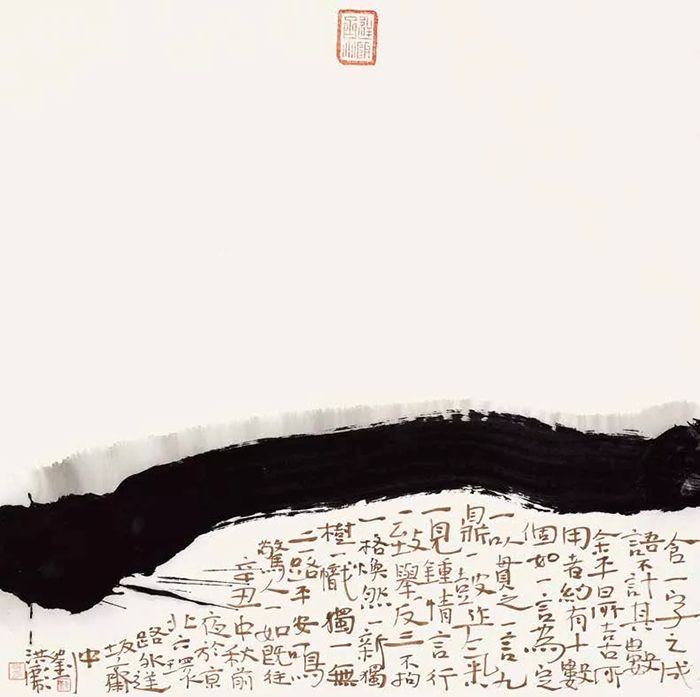 含一字之成
語不計其數
余平
用者約有十數
個如一言為定
一以貫之一言九
鼎一鼓作
一見鍾情言行
一致舉反三不拘
一格煥然一新獨
樹一幟獨一無
二一路平安一鳴
驚人一如既往
辛丑中秋前
夜於京
北六環
路外逆
坂齋
中
劉
洪彪